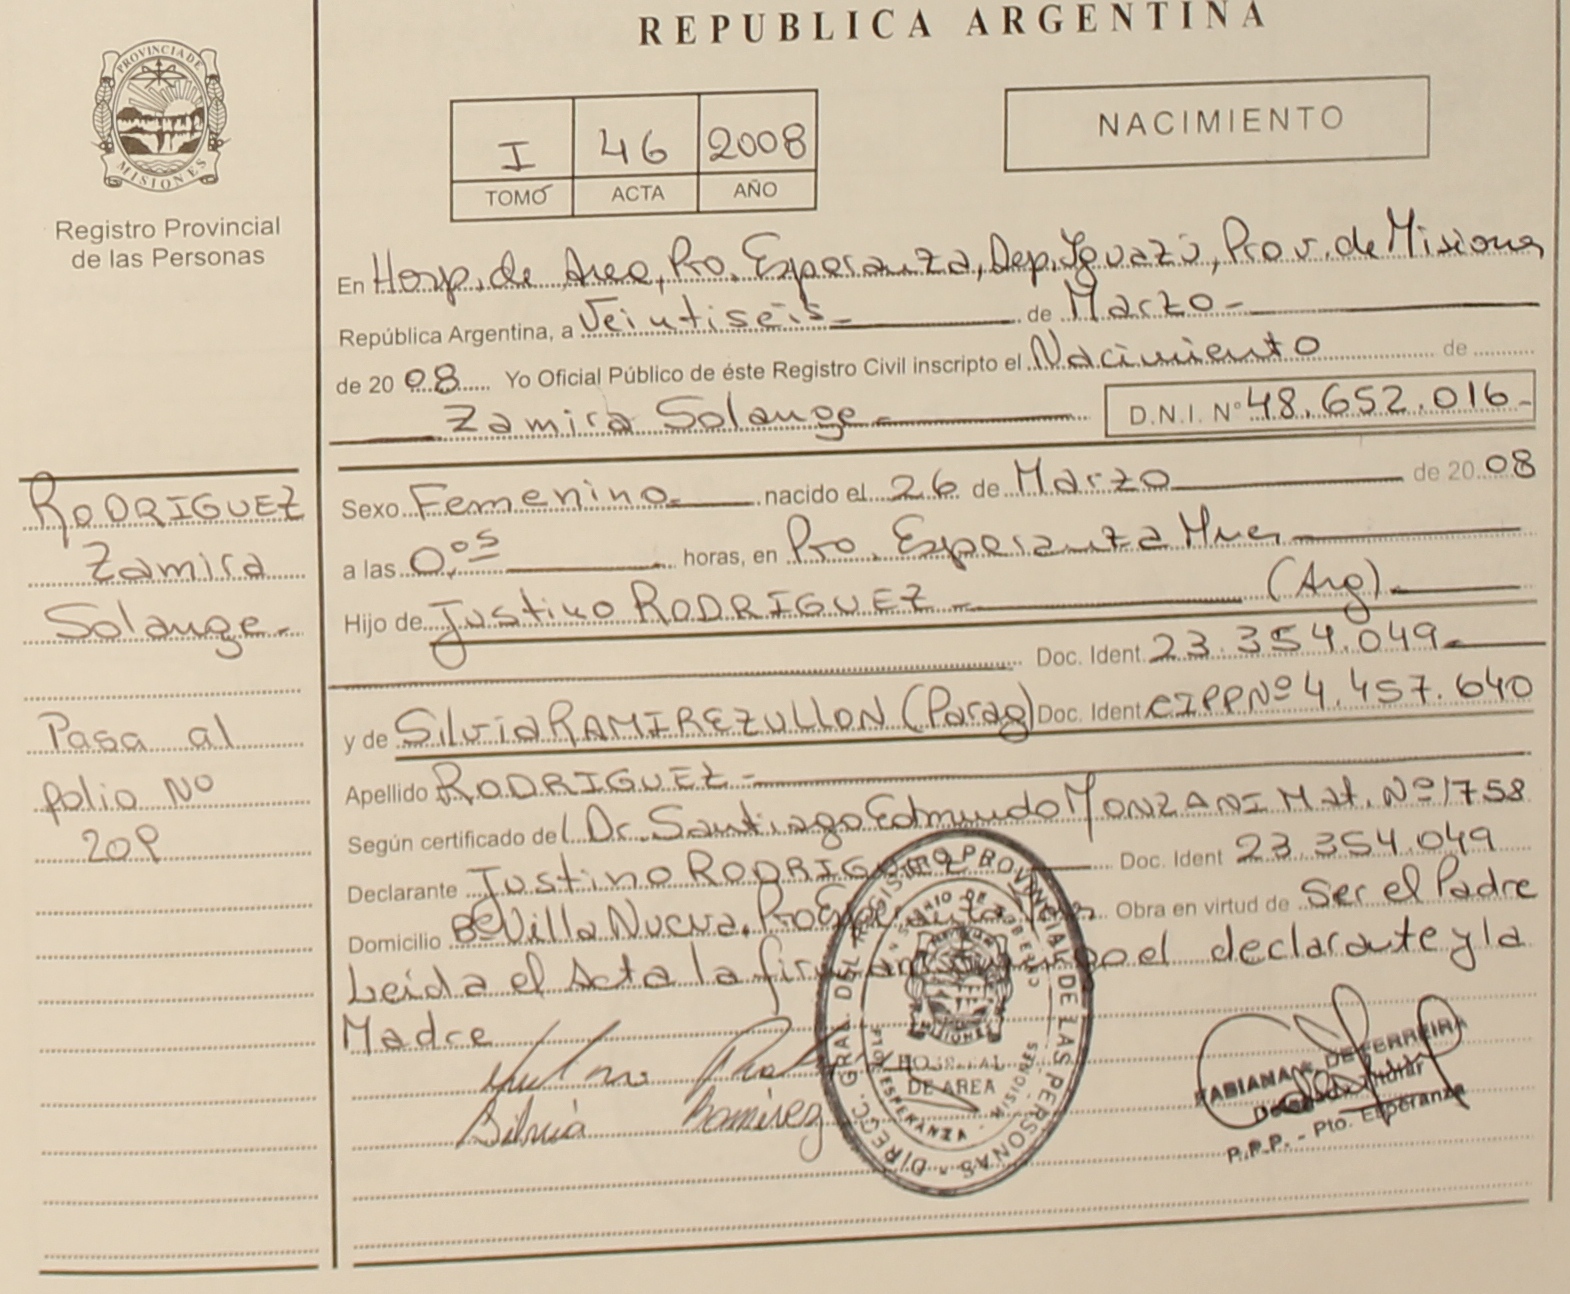 REPUBLICA ARGENTINA
PROVINCIA DE
MISIONES
Registro Provincial
de las Personas
I 46 2008
TOMO ACTA AÑO
NACIMIENTO
En Hosp. de Area, Pto. Esperanza, Dep. Iguazú, Prov. de Misiones
República Argentina, a Veintiseis de Marzo
de 2008 Yo Oficial Público de éste Registro Civil inscripto el Nacimiento de
Zamira Solange D.N.I. Nº 48.652.016
Sexo Femenino nacido el 26 de Marzo de 2008
a las 0,05 horas, en Pto. Esperanza Mnes
Hijo de Justino RODRIGUEZ (Arg)
Doc. Ident 23.354.049
y de Silvia RAMIREZ ULLON (Parag) Doc. Ident CIPPNº 4.457.640
Apellido RODRIGUEZ
Según certificado del Dr. Santiago Edmundo MONZANI Mat. Nº 1758
Declarante Justino RODRIGUEZ Doc. Ident 23.354.049
Domicilio Bº Villa Nueva, Pto Esperanza Obra en virtud de Ser el Padre
Leida el Acta la firman el declarante y la
Madre
RODRIGUEZ
Zamira
Solange
Pasa al
folio Nº
20P
Silvia Ramirez
DIRECC. GRAL. DEL REGISTRO PROVINCIAL DE LAS PERSONAS
HOSPITAL
DE AREA
PTO. ESPERANZA - MISIONES
FABIANA DE FERREIRA
Delegada Titular
R.P.P. - Pto. Esperanza